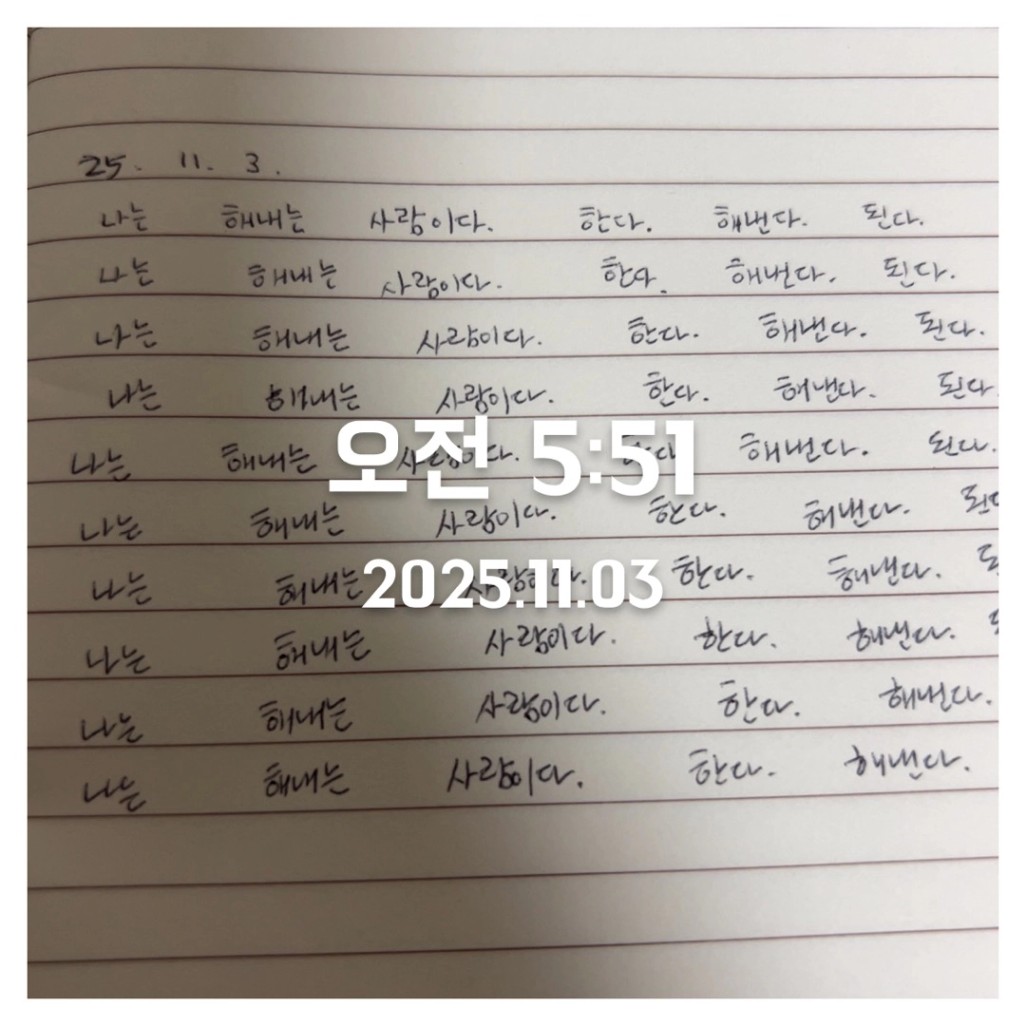 25. 11. 3.
나는 해내는 사람이다. 한다. 해낸다. 된다.
나는 해내는 사람이다. 한다. 해낸다. 된다.
나는 해내는 사람이다. 한다. 해낸다. 된다.
나는 해내는 사람이다. 한다. 해낸다. 된다
나는 해내는 사람이다. 한다 해낸다. 된다.
오전 5:51
나는 해내는 사람이다. 한다. 해낸다. 된다
나는 해내는 사람이다. 한다. 해낸다.
2025.11.03
나는 해내는 사람이다. 한다. 해낸다.
나는 해내는 사람이다. 한다. 해낸다.
나는 해내는 사람이다. 한다. 해낸다.